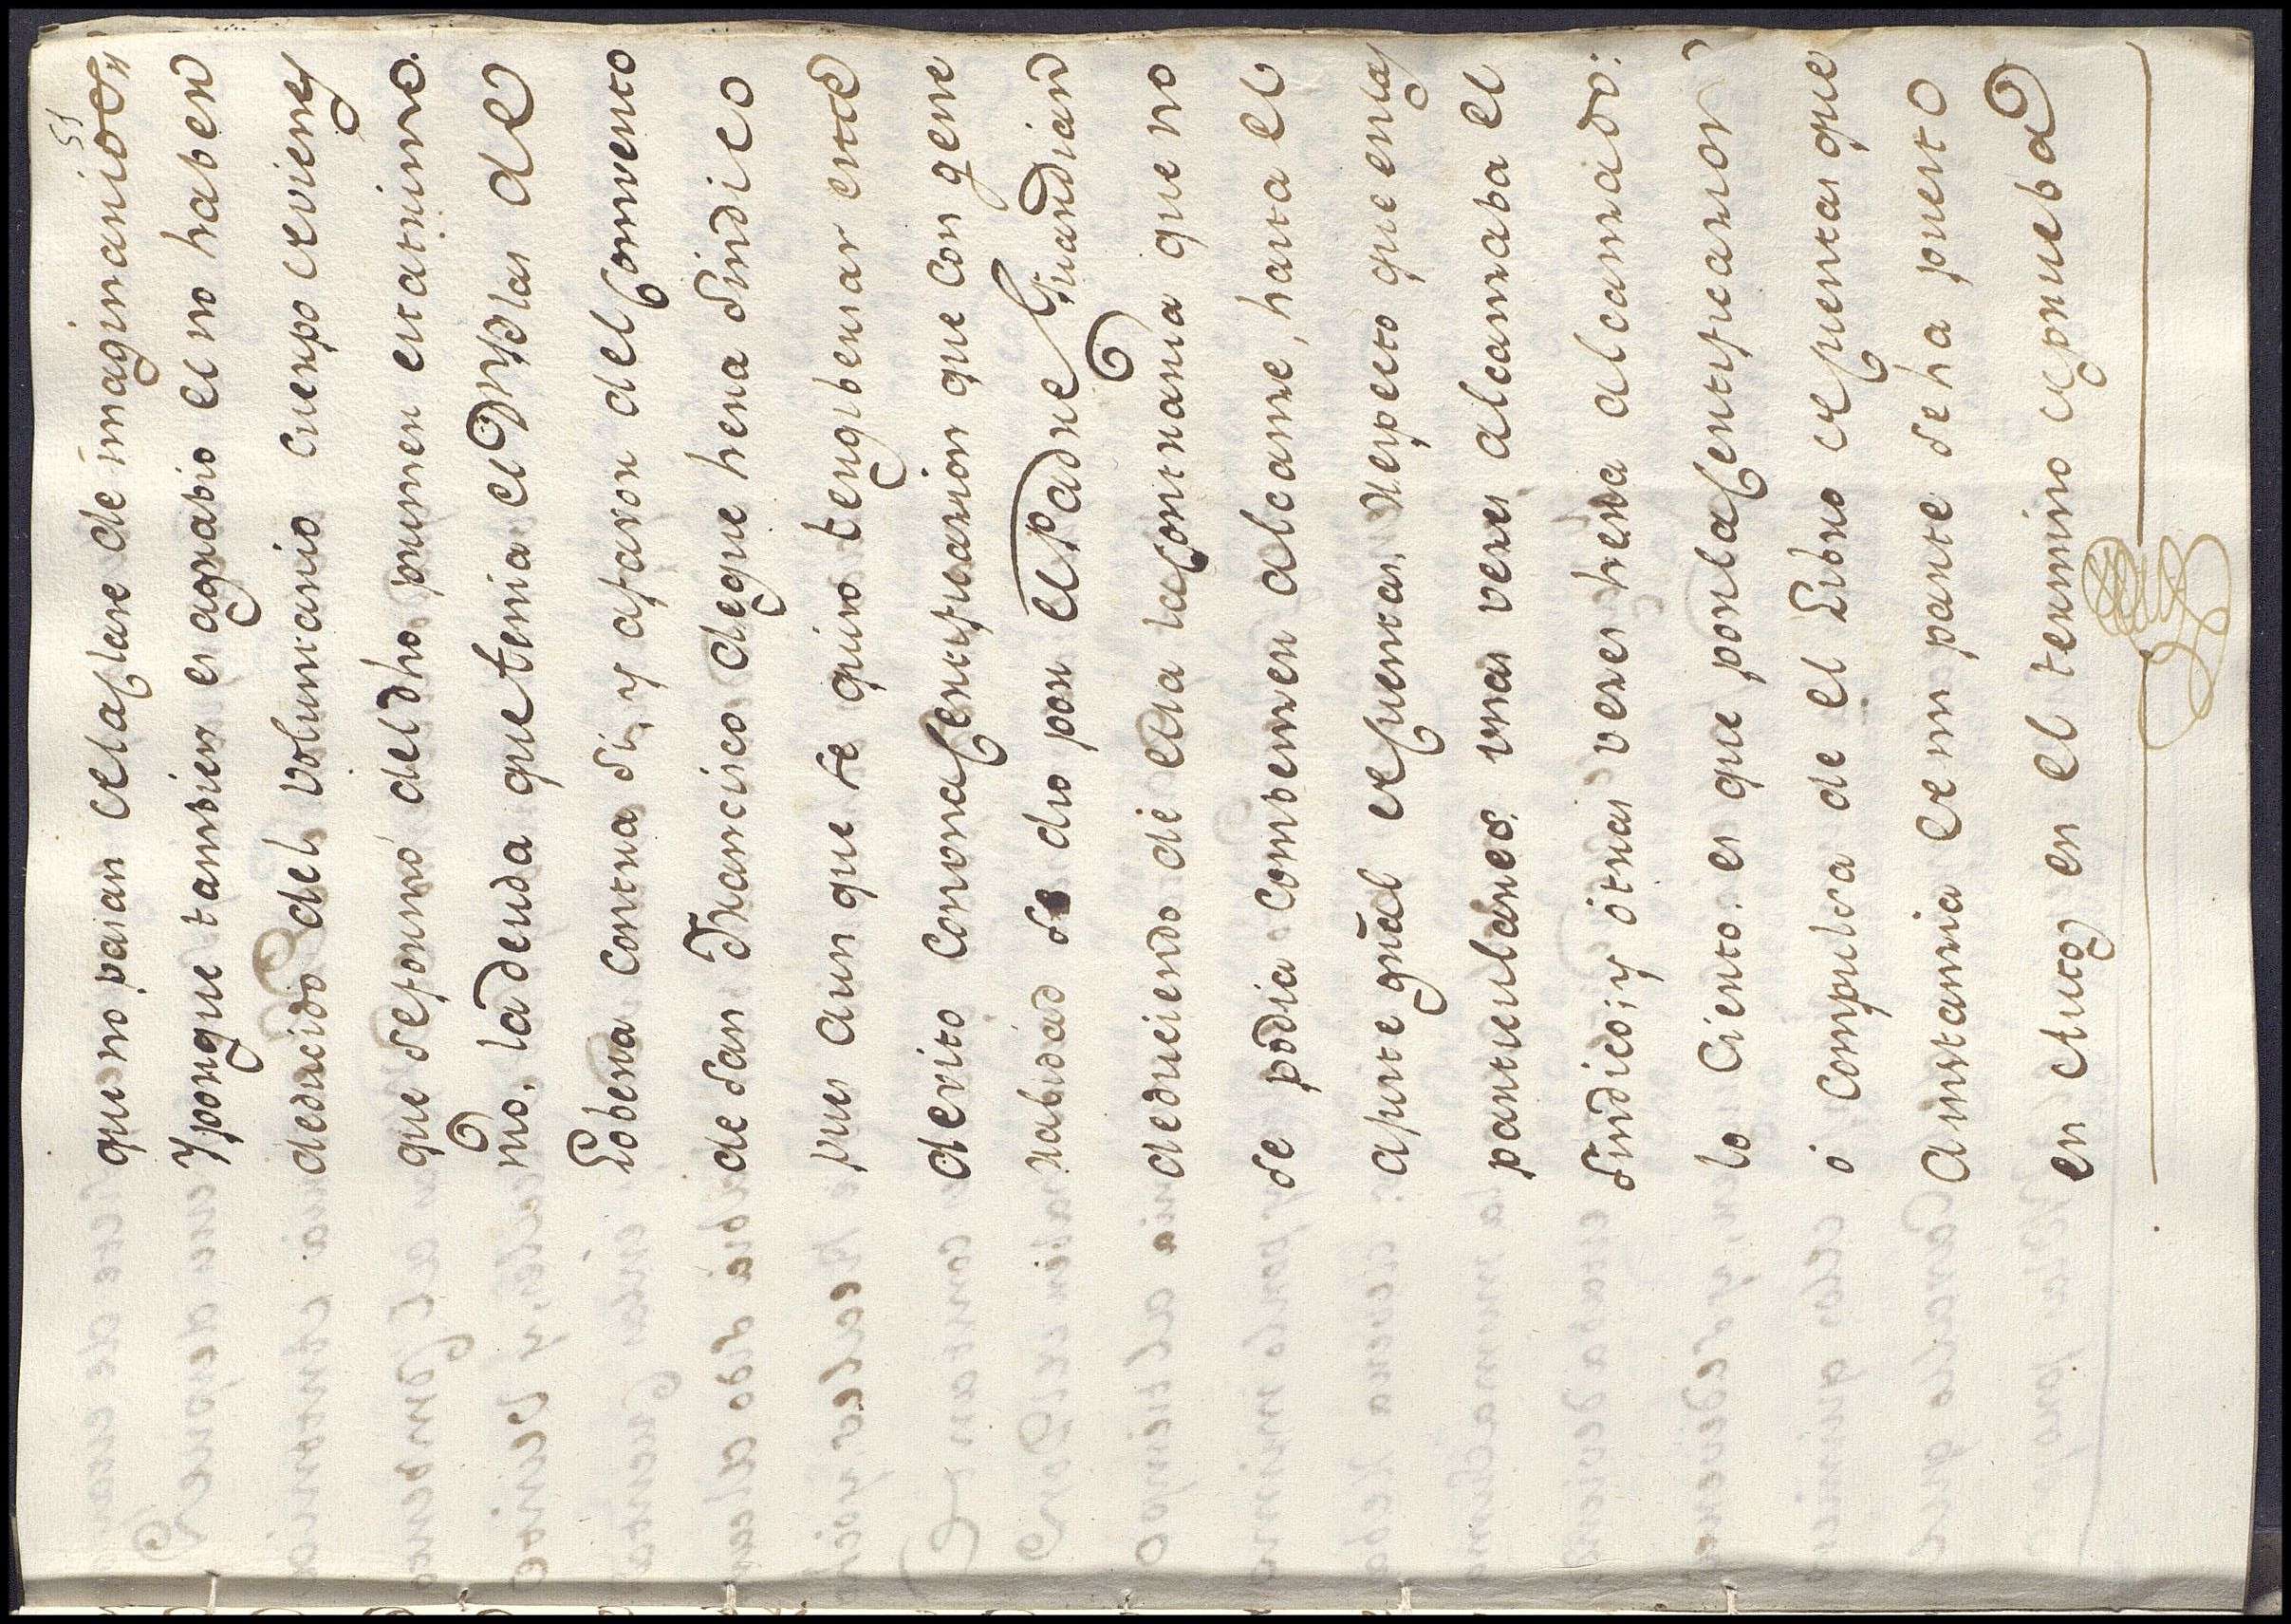 51
que no pasan de la clase de imaginarios,
Y porque tambien es agrabio el no haber
deducido del voluntario cuerpo de vienes
que se formo del dho primer extatrimo.
mo, la deuda que tenia el Dr. Dn. Blas de
Lobera contra si, y afavor del Convento
de San Francisco de que hera Sindico
pues aun que se quiso tengibersar este
devito con vna Certificacion que con gene
ralidad se dio por el Padre Guardian
deduciendo de ella la Contraria que no
se podia combenser alcanse, hasta el
ajuste gral de Cuentas, respecto que en las
particulares vnas veses alcansaba el
Sindico; y otras veses hera alcansado:
lo Ciento es que por la Certificacion
ò Compulsa de el Libro de Cuentas que
a instancia de mi parte se ha puesto
en Autos en el termino de prueba